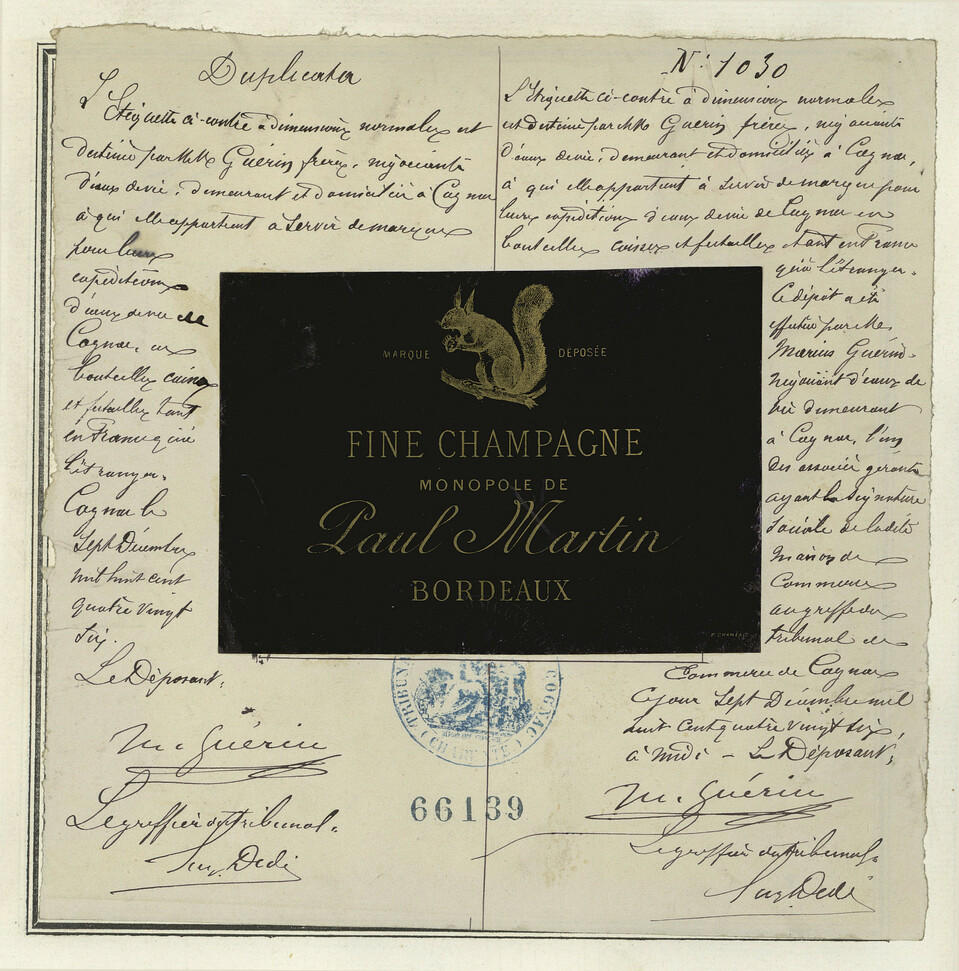 Duplicata
L'Etiquette ci-contre à dimensions normales est
destinée par MM Guérin frères, négociants
d'eaux devie, demeurant et domiciliés à Cognac
à qui elle appartient à servir de marque
pour leurs
expéditions
d'eaux devie de
Cognac, en
bouteilles caisses
et futailles tant
en France qu'à
l'étranger.
Cognac le
Sept Décembre
mil huit cent
quatre vingt
six.
Le Déposant,
M. Guérin
Le greffier du Tribunal.
N° 1030
L'Etiquette ci-contre à dimensions normales
est destinée par MM Guérin frères, négociants
d'eaux devie, demeurant et domiciliés à Cognac,
à qui elle appartient à servir de marque pour
leurs expéditions d'eaux devie de Cognac en
bouteilles caisses et futailles tant en France
qu'à l'étranger.
Ce dépôt a été
effectué par Me
Marius Guérin
négociant d'eaux de
vie demeurant
à Cognac, l'un
des associés gérants
ayant la signature
sociale de la dite
maison de
Commerce
au greffe du
tribunal de
Commerce de Cognac
Ce jour Sept Décembre mil
huit cent quatre vingt six,
à midi - Le Déposant,
M. Guérin
Le greffier du Tribunal.
MARQUE DÉPOSÉE
FINE CHAMPAGNE
MONOPOLE DE
Paul Martin
BORDEAUX
TRIBUNAL COGNAC
(CHARENTE)
66139